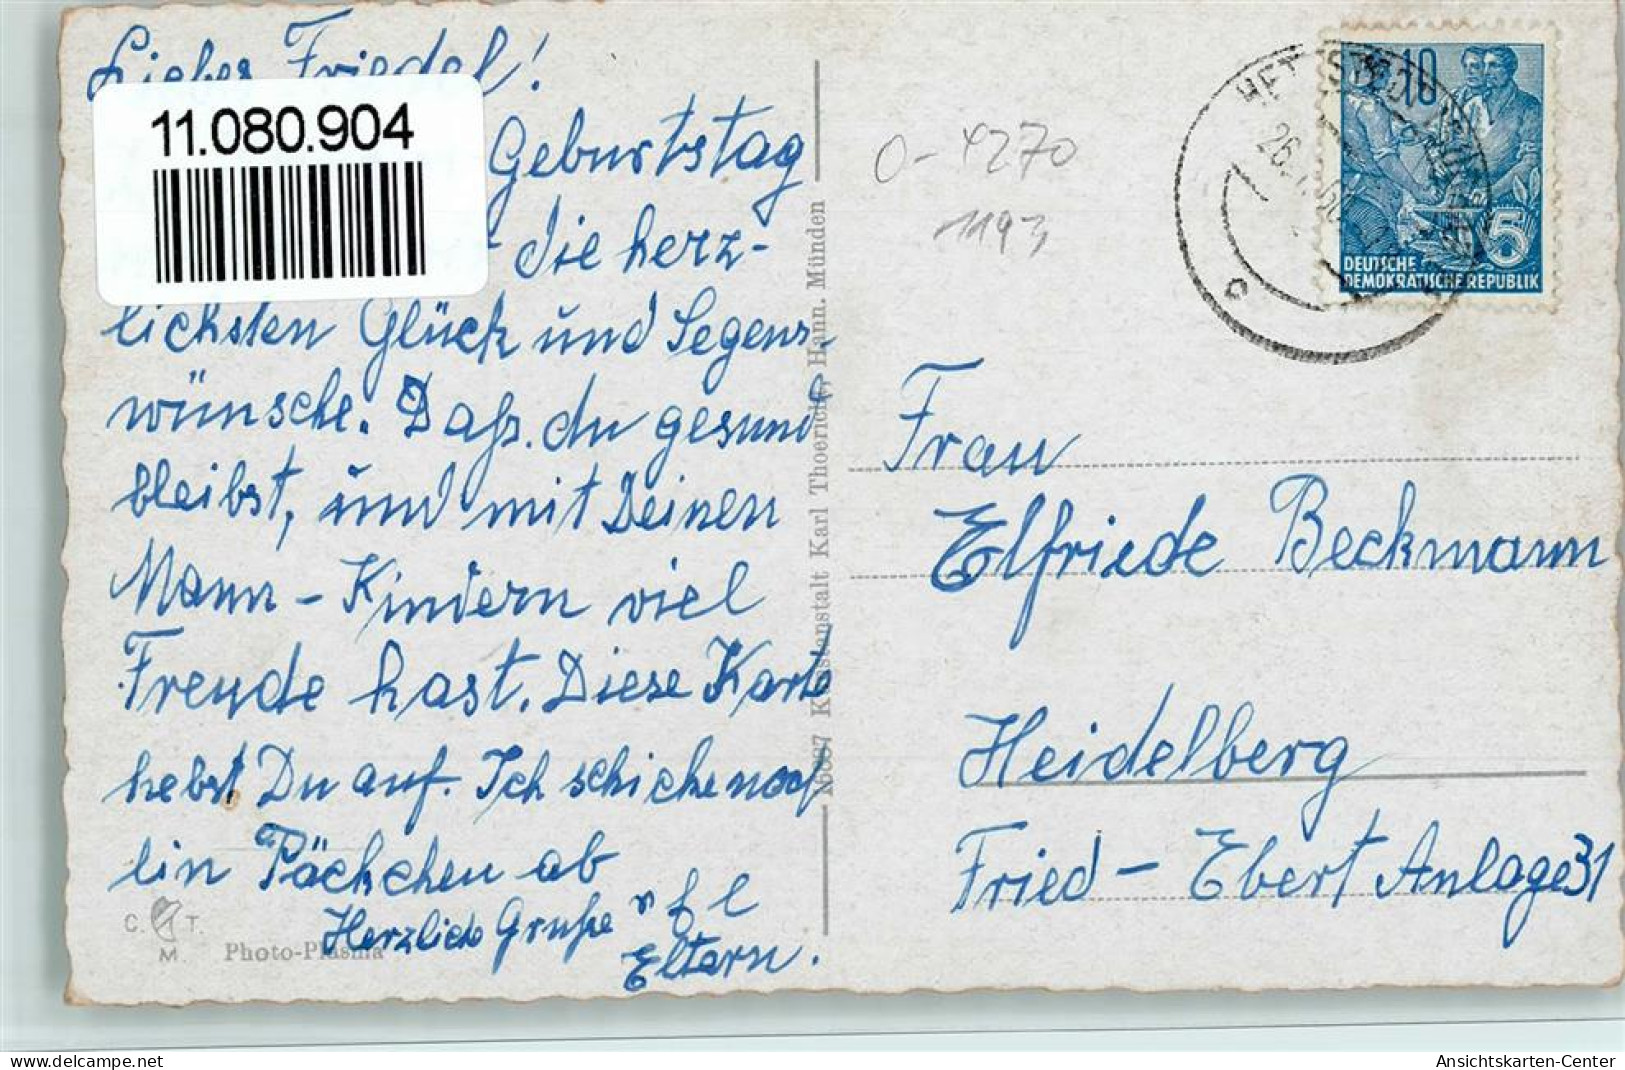 Liebes Friedel!
11.080.904
Geburtstag
die herz-
lichsten Glück und Segens-
wünsche. Daß. du gesund
bleibst, und mit Deinen
Mann - Kindern viel
Freude hast. Diese Karte
hebst Du auf. Ich schicke noch
ein Päckchen ab
Herzliche Grüße
Eltern.
C. T.
M.
Photo-Plasma
Kunstanstalt Karl Thoericht, Hann. Münden
0-4270
1193
HETTSTEDT
10
5
DEUTSCHE
DEMOKRATISCHE REPUBLIK
Frau
Elfriede Beckmann
Heidelberg
Fried - Ebert Anlage 31
Ansichtskarten-Center